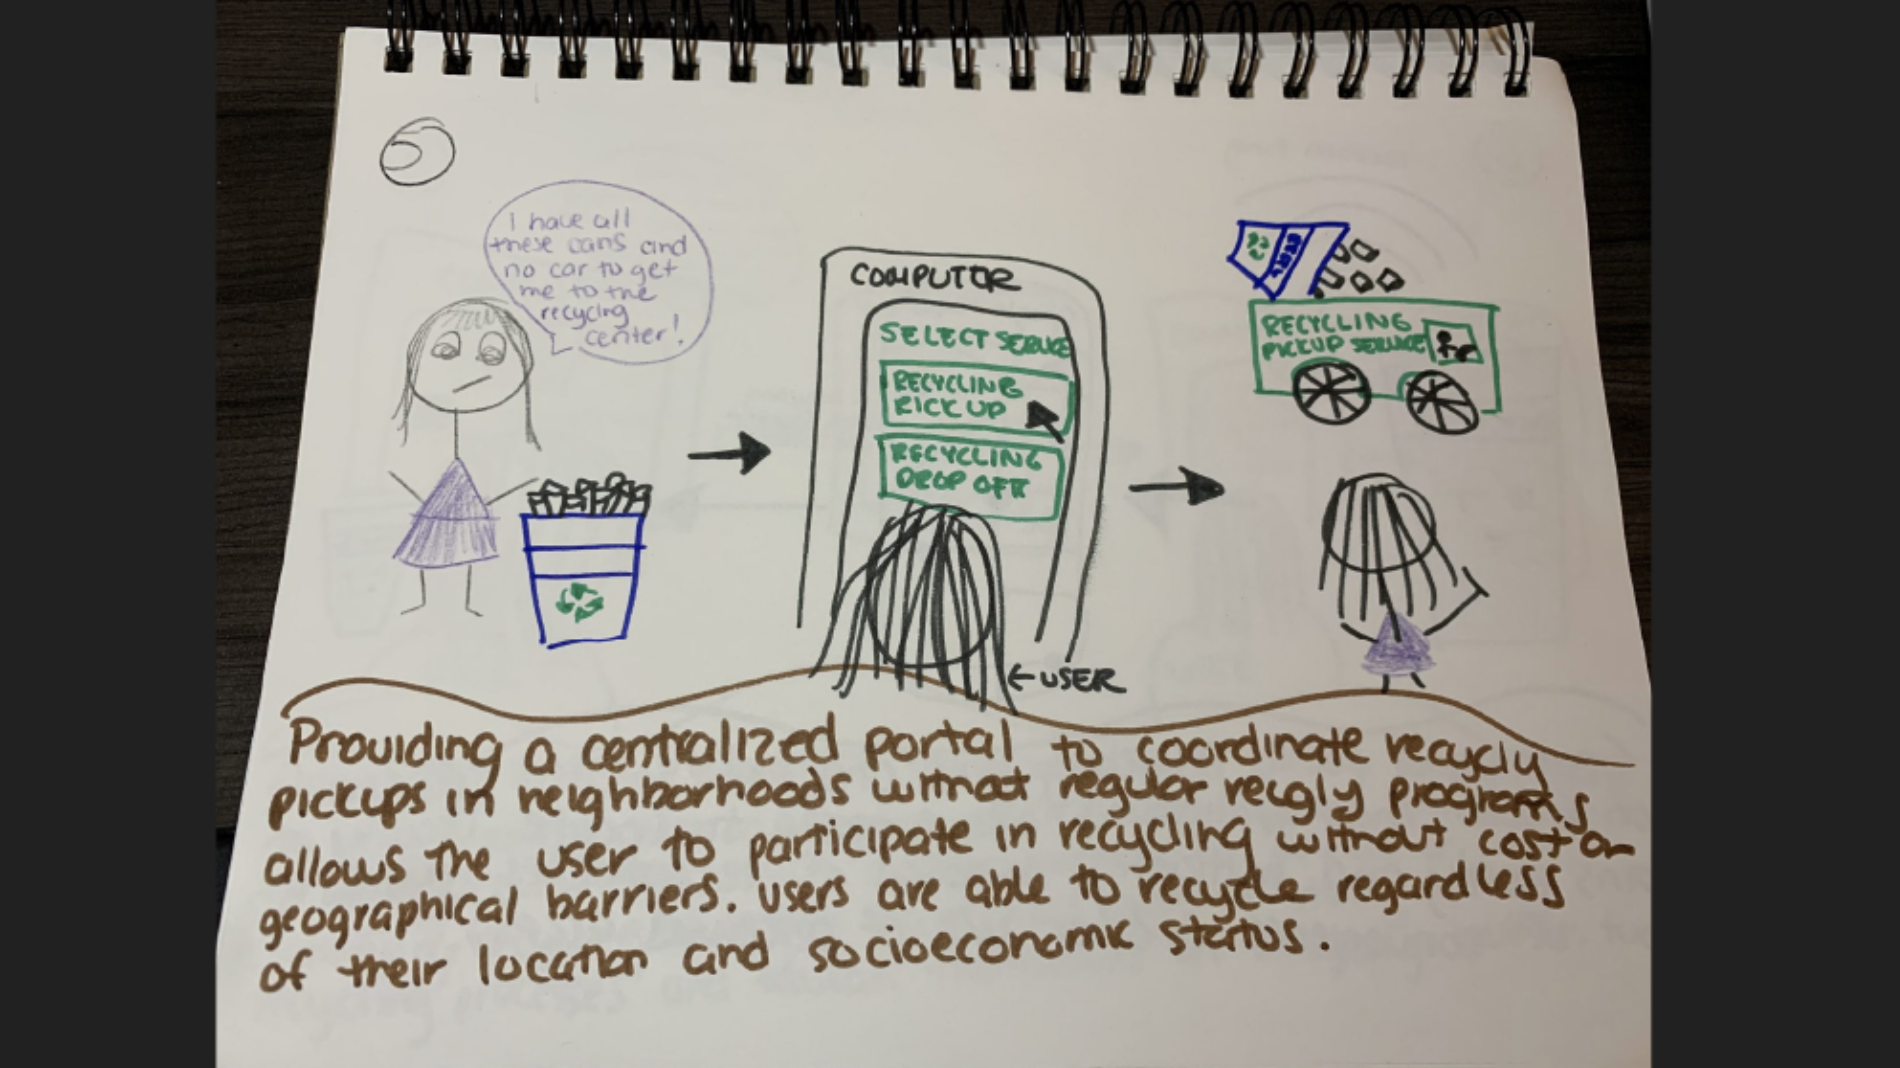 I have all
these cans and
no car to get
me to the
recycling
center!
COMPUTER
SELECT SERVICE
RECYCLING
PICK UP
RECYCLING
DROP OFF
←USER
RECYCLING
PICKUP SERVICE
Providing a centralized portal to coordinate recycling
pickups in neighborhoods without regular recycling programs
allows the user to participate in recycling without cost or
geographical barriers. Users are able to recycle regardless
of their location and socioeconomic status.